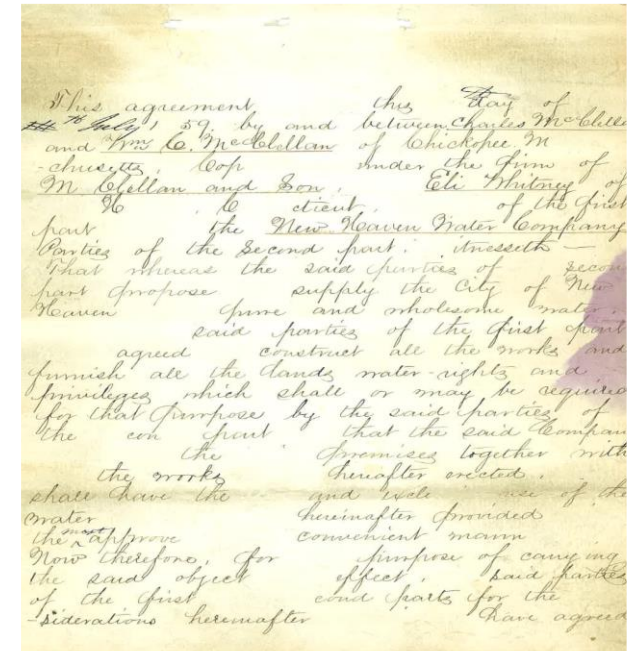 This agreement this day of
th July 1 59, by and between Charles McClelle
and Wm C. McClellan of Chickopee M
-chusetts Cop under the firm of
M Clellan and Son, Eli Whitney of
N C cticut of the first
part the New Haven Water Company
Parties of the Second part. itnesseth —
That whereas the said parties of secon
part propose supply the City of New
Haven pure and wholesome water.
said parties of the first part
agreed construct all the works and
furnish all the lands water-rights and
privileges which shall or may be require
for that purpose by the said parties of
the con part that the said Compan
the premises together with
the works hereafter erected.
shall have the and excle use of the
water hereinafter provided
the most approve convenient mann
Now therefore, for purpose of carrying
the said object effect, said parties
of the first cond parts for the
-siderations hereinafter have agreed